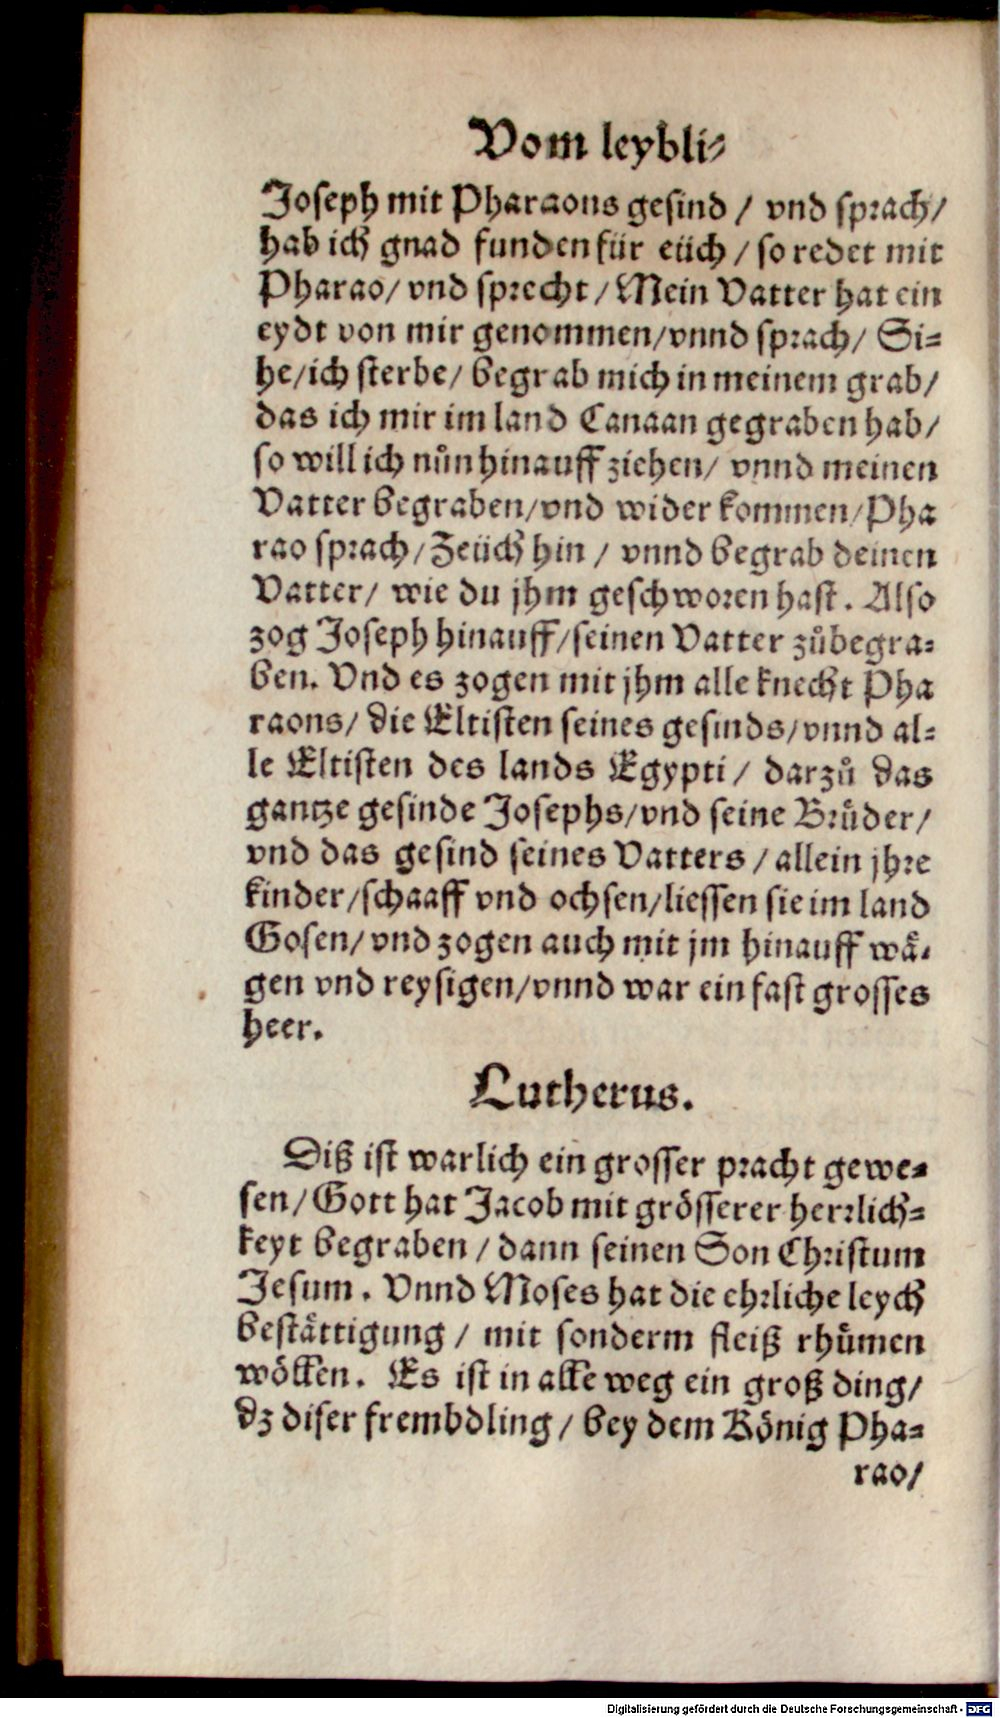 Vom leybli⸗
Joseph mit Pharaons gesind / vnd sprach/
hab ich gnad funden für eüch / so redet mit
Pharao/ vnd sprecht / Mein Vatter hat ein
eydt von mir genommen/vnnd sprach/ Si=
he/ich sterbe/ begrab mich in meinem grab/
das ich mir im land Canaan gegraben hab/
so will ich nůn hinauff ziehen/ vnnd meinen
Vatter begraben/vnd wider kommen/Pha
rao sprach/Zeüch hin / vnnd begrab deinen
Vatter/ wie du jhm geschworen hast. Also
zog Joseph hinauff/seinen Vatter zůbegra=
ben. Vnd es zogen mit jhm alle knecht Pha
raons/ die Eltisten seines gesinds/vnnd al=
le Eltisten des lands Egypti/ darzů das
gantze gesinde Josephs/vnd seine Brůder/
vnd das gesind seines Vatters / allein jhre
kinder/schaaff vnd ochsen/liessen sie im land
Gosen/ vnd zogen auch mit jm hinauff wä=
gen vnd reysigen/vnnd war ein fast grosses
heer.
Lutherus.
Diß ist warlich ein grosser pracht gewe=
sen/Gott hat Jacob mit grösserer herrlich=
keyt begraben / dann seinen Son Christum
Jesum. Vnnd Moses hat die ehrliche leych
bestättigung / mit sonderm fleiß rhümen
wöllen. Es ist in alle weg ein groß ding/
dz diser frembdling / bey dem König Pha=
rao/
Digitalisierung gefördert durch die Deutsche Forschungsgemeinschaft - DFG